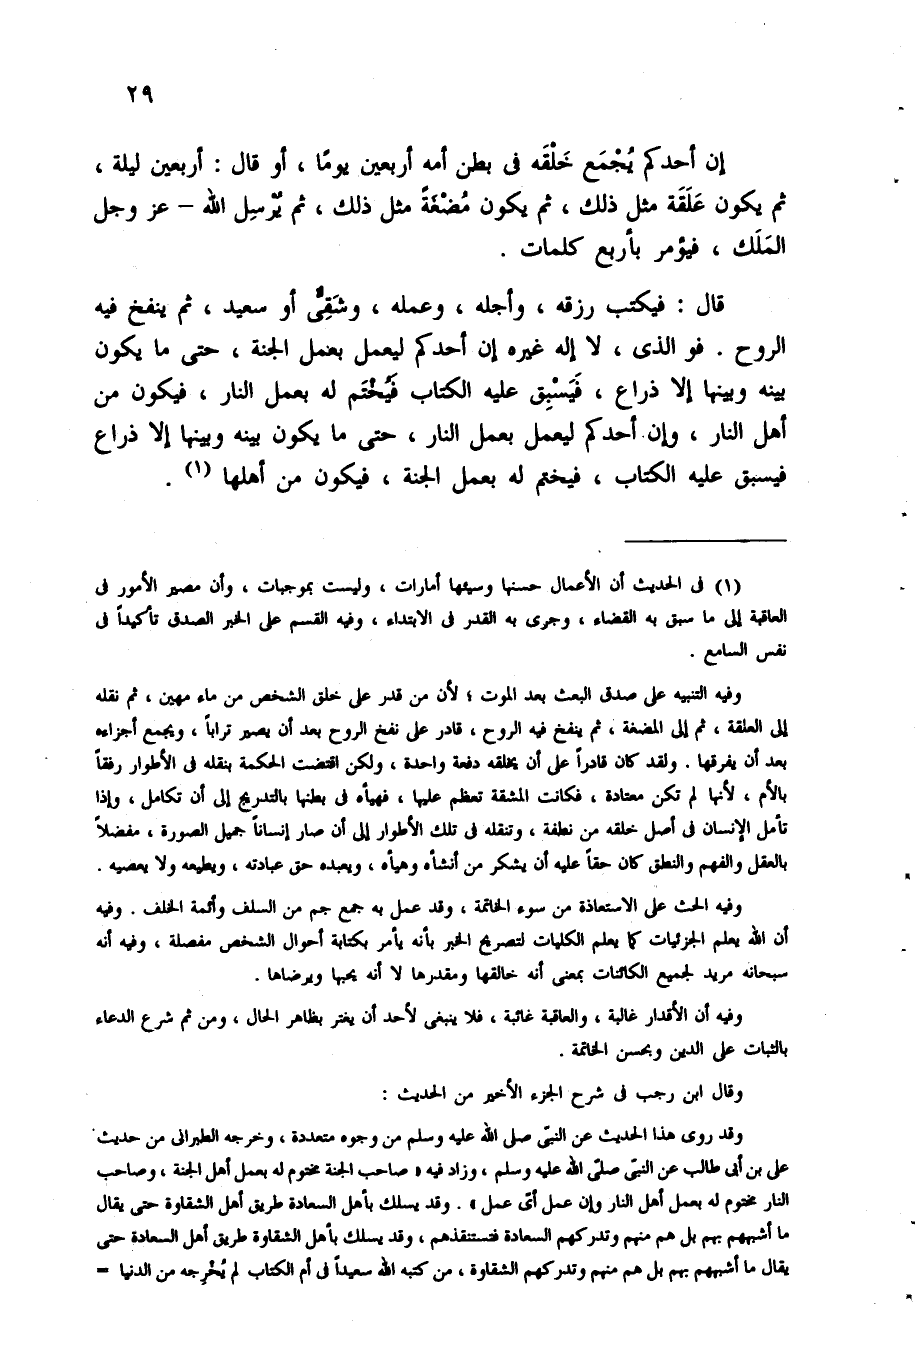 ٢٩
إن أحدكم يُجْمَع خَلْقَه فى بطن أمه أربعين يومًا ، أو قال : أربعين ليلة ،
ثم يكون عَلَقَة مثل ذلك ، ثم يكون مُضْغَةً مثل ذلك ، ثم يُرْسِل الله – عز وجل
المَلَك ، فيؤمر بأربع كلمات .
قال : فيكتب رزقه ، وأجله ، وعمله ، وشَقِىٌّ أو سعيد ، ثم ينفخ فيه
الروح . فو الذى ، لا إله غيره إن أحدكم ليعمل بعمل الجنة ، حتى ما يكون
بينه وبينها إلا ذراع ، فَيَسْبِق عليه الكتاب فَيُخْتَم له بعمل النار ، فيكون من
أهل النار ، وإن أحدكم ليعمل بعمل النار ، حتى ما يكون بينه وبينها إلا ذراع
فيسبق عليه الكتاب ، فيختم له بعمل الجنة ، فيكون من أهلها (١) .
(١) فى الحديث أن الأعمال حسنها وسيئها أمارات ، وليست بموجبات ، وأن مصير الأمور فى
العاقبة إلى ما سبق به القضاء ، وجرى به القدر فى الابتداء ، وفيه القسم على الخبر الصدق تأكيداً فى
نفس السامع .
وفيه التنبيه على صدق البعث بعد الموت ؛ لأن من قدر على خلق الشخص من ماء مهين ، ثم نقله
إلى العلقة ، ثم إلى المضغة ، ثم ينفخ فيه الروح ، قادر على نفخ الروح بعد أن يصير تراباً ، ويجمع أجزاءه
بعد أن يفرقها . ولقد كان قادراً على أن يخلقه دفعة واحدة ، ولكن اقتضت الحكمة بنقله فى الأطوار رفقاً
بالأم ، لأنها لم تكن معتادة ، فكانت المشقة تعظم عليها ، فهيأه فى بطنها بالتدريج إلى أن تكامل ، وإذا
تأمل الإنسان فى أصل خلقه من نطفة ، وتنقله فى تلك الأطوار إلى أن صار إنساناً جميل الصورة ، مفضلاً
بالعقل والفهم والنطق كان حقاً عليه أن يشكر من أنشأه وهيأه ، ويعبده حق عبادته ، ويطيعه ولا يعصيه .
وفيه الحث على الاستعاذة من سوء الخاتمة ، وقد عمل به جمع جم من السلف وأئمة الخلف . وفيه
أن الله يعلم الجزئيات كما يعلم الكليات لتصريح الخبر بأنه يأمر بكتابة أحوال الشخص مفصلة ، وفيه أنه
سبحانه مريد لجميع الكائنات بمعنى أنه خالقها ومقدرها لا أنه يحبها ويرضاها .
وفيه أن الأقدار غالبة ، والعاقبة غائبة ، فلا ينبغى لأحد أن يغتر بظاهر الحال ، ومن ثم شرع الدعاء
بالثبات على الدين وبحسن الخاتمة .
وقال ابن رجب فى شرح الجزء الأخير من الحديث :
وقد روى هذا الحديث عن النبىّ صلى الله عليه وسلم من وجوه متعددة ، وخرجه الطبرانى من حديث
على بن أبى طالب عن النبىّ صلّى الله عليه وسلم ، وزاد فيه « صاحب الجنة مختوم له بعمل أهل الجنة ، وصاحب
النار مختوم له بعمل أهل النار وإن عمل أىّ عمل » . وقد يسلك بأهل السعادة طريق أهل الشقاوة حتى يقال
ما أشبههم بهم بل هم منهم وتدركهم السعادة فتستنقذهم ، وقد يسلك بأهل الشقاوة طريق أهل السعادة حتى
يقال ما أشبههم بهم بل هم منهم وتدركهم الشقاوة ، من كتبه الله سعيداً فى أم الكتاب لم يُخْرِجه من الدنيا =